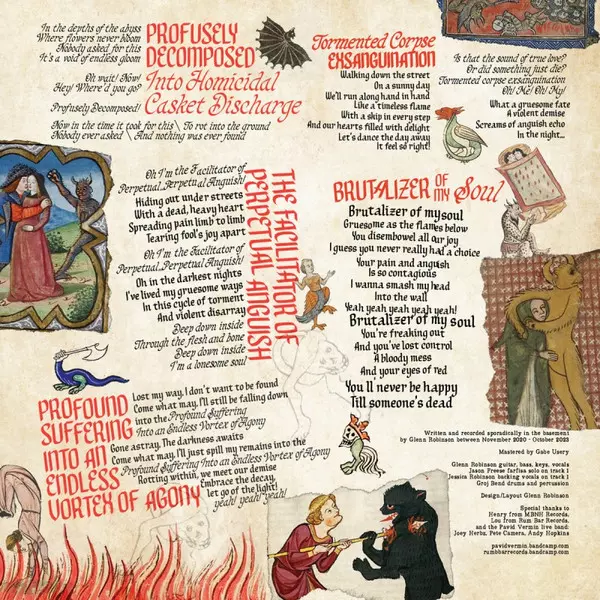 PROFUSELY
DECOMPOSED
Into Homicidal
Casket Discharge
In the depths of the abyss
Where flowers never bloom
Nobody asked for this
It's a void of endless gloom
Oh wait! Now!
Hey! Where'd you go?
Profusely Decomposed!
Now in the time it took for this \ To rot into the ground
Nobody ever asked \ And nothing was ever found
Tormented Corpse
EXSANGUINATION
Walking down the street
On a sunny day
We'll run along hand in hand
Like a timeless flame
With a skip in every step
And our hearts filled with delight
Let's dance the day away
It feel so right!
Is that the sound of true love?
Or did something just die?
Tormented corpse exsanguination
Oh! Me! Oh! My!
What a gruesome fate
A violent demise
Screams of anguish echo
In the night...
THE FACILITATOR OF
PERPETUAL ANGUISH
Oh I'm the Facilitator of
Perpetual...Perpetual Anguish!
Hiding out under streets
With a dead, heavy heart
Spreading pain limb to limb
Tearing fool's joy apart
Oh I'm the Facilitator of
Perpetual...Perpetual Anguish!
Oh in the darkest nights
I've lived my gruesome ways
In this cycle of torment
And violent disarray
Deep down inside
Through the flesh and bone
Deep down inside
I'm a lonesome soul
BRUTALIZER OF MY Soul
Brutalizer of my soul
Gruesome as the flames below
You disembowel all our joy
I guess you never really had a choice
Your pain and anguish
Is so contagious
I wanna smash my head
Into the wall
Yeah yeah yeah yeah yeah!
Brutalizer of my soul
You're freaking out
And you've lost control
A bloody mess
And your eyes of red
You'll never be happy
Till someone's dead
PROFOUND
SUFFERING
INTO AN
ENDLESS
VORTEX OF AGONY
Lost my way, I don't want to be found
Come what may, I'll still be falling down
into the Profound Suffering
Into an Endless Vortex of Agony
Gone astray, The darkness awaits
Come what may, I'll just spill my remains into the
Profound Suffering Into an Endless Vortex of Agony
Rotting within, we meet our demise
Embrace the decay,
let go of the light!
yeah! yeah! yeah!
Written and recorded sporadically in the basement
by Glenn Robinson between November 2020 - October 2023
Mastered by Gabe Usery
Glenn Robinson guitar, bass, keys, vocals
Jason Freese farfisa solo on track 1
Jessica Robinson backing vocals on track 1
Groj Bend drums and percussion
Design/Layout Glenn Robinson
Special thanks to
Henry from MBNH Records,
Lou from Rum Bar Records,
and the Pavid Vermin live band:
Joey Herbz, Pete Camera, Andy Hopkins
pavidvermin.bandcamp.com
rumbarrecords.bandcamp.com